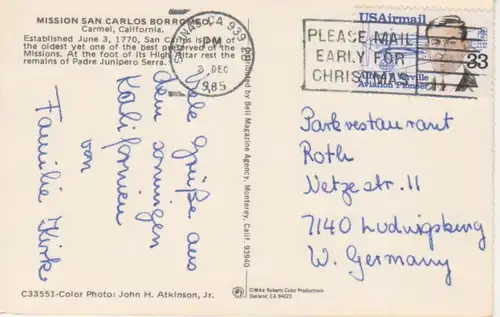 MISSION SAN CARLOS BORROMEO,
Carmel, California.
Established June 3, 1770, San Carlos is one of
the oldest yet one of the best preserved of the
Missions. At the foot of its High Altar rest the
remains of Padre Junipero Serra.
SALINAS, CA 939
PM
3 DEC
1985
PLEASE MAIL
EARLY FOR
CHRISTMAS
USAirmail
33
Alfred Verville
Aviation Pioneer
Viele Grüße aus
dem sonnigen
Kalifornien
von
Familie Kirk
Distributed by Bell Magazine Agency, Monterey, Calif. 93940
Parkrestaurant
Roth
Netzestr. 11
7140 Ludwigsburg
W. Germany
C33551-Color Photo: John H. Atkinson, Jr.
©Mike Roberts Color Productions
Oakland, CA 94623